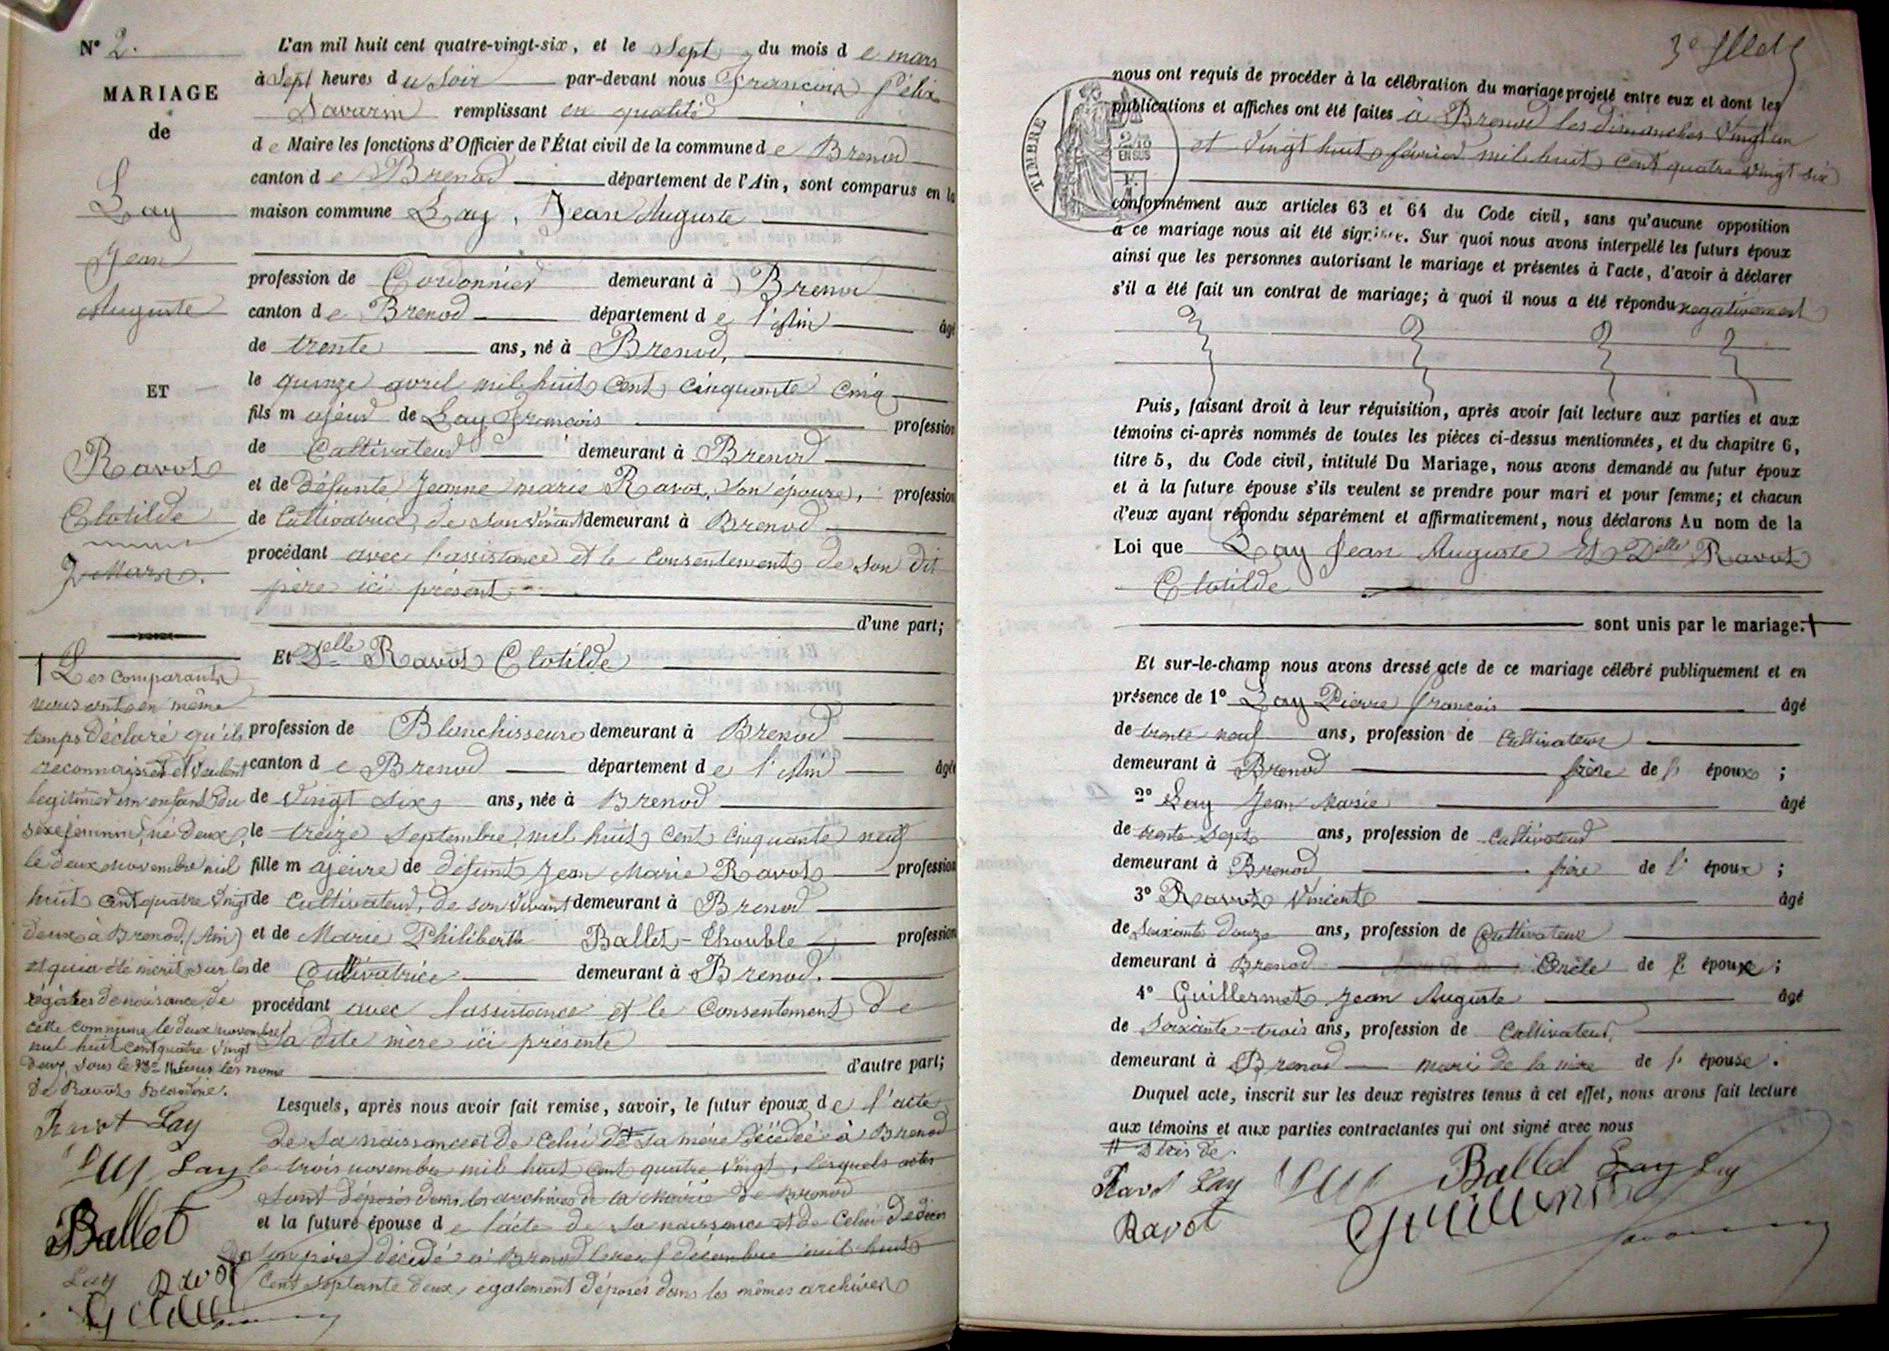 N° 2.
MARIAGE
de
Lay
Jean
Auguste
ET
Ravot
Clotilde
7 Mars.
† Les comparants
nous ont en même
temps déclaré qu'ils
reconnaissent et veulent
légitimer un enfant du
sexe féminin, né deux,
le deux novembre mil
huit cent quatre vingt
deux à Brenod (Ain)
et qui a été inscrit sur les
régistres de naissance de
cette commune le deux novembre
mil huit cent quatre vingt
deux, sous le N° les noms
de Ravot Blandine.
Ravot Lay
Lay
Ballet
Lay Ravot
L'an mil huit cent quatre-vingt-six, et le Sept du mois de mars
à Sept heures du Soir par-devant nous François Félix
Savarin remplissant en qualité
de Maire les fonctions d'Officier de l'État civil de la commune de Brenod
canton de Brenod département de l'Ain, sont comparus en la
maison commune Lay, Jean Auguste
profession de Cordonnier demeurant à Brenod
canton de Brenod département de l'Ain âgé
de trente ans, né à Brenod,
le quinze avril mil huit cent cinquante cinq
fils majeur de Lay François profession
de Cultivateur demeurant à Brenod
et de défunte Jeanne Marie Ravot, son épouse, profession
de Cultivatrice, de son vivant demeurant à Brenod
procédant avec l'assistance et le consentement de son dit
père ici présent
d'une part;
Et Delle Ravot Clotilde
profession de Blanchisseuse demeurant à Brenod
canton de Brenod département de l'Ain âgée
de vingt six ans, née à Brenod
le treize Septembre mil huit cent cinquante neuf
fille majeure de défunt Jean Marie Ravot profession
de Cultivateur, de son vivant demeurant à Brenod
et de Marie Philiberte Ballet-Thouble profession
de Cultivatrice demeurant à Brenod.
procédant avec l'assistance et le consentement de
sa dite mère ici présente
d'autre part;
Lesquels, après nous avoir fait remise, savoir, le futur époux de l'acte
de sa naissance et de celui de sa mère décédée à Brenod
le trois novembre mil huit cent quatre vingt, lesquels actes
sont déposés dans les archives de la Mairie de Brenod
et la future épouse de l'acte de sa naissance et de celui de décès
de son père décédé à Brenod le neuf décembre mil huit
cent septante deux, également déposés dans les mêmes archives
TIMBRE
2/10
EN SUS
nous ont requis de procéder à la célébration du mariage projeté entre eux et dont les
publications et affiches ont été faites à Brenod les dimanches vingt un
et vingt huit février mil huit cent quatre vingt six
conformément aux articles 63 et 64 du Code civil, sans qu'aucune opposition
à ce mariage nous ait été signifiée. Sur quoi nous avons interpellé les futurs époux
ainsi que les personnes autorisant le mariage et présentes à l'acte, d'avoir à déclarer
s'il a été fait un contrat de mariage; à quoi il nous a été répondu négativement
Puis, faisant droit à leur réquisition, après avoir fait lecture aux parties et aux
témoins ci-après nommés de toutes les pièces ci-dessus mentionnées, et du chapitre 6,
titre 5, du Code civil, intitulé Du Mariage, nous avons demandé au futur époux
et à la future épouse s'ils veulent se prendre pour mari et pour femme; et chacun
d'eux ayant répondu séparément et affirmativement, nous déclarons Au nom de la
Loi que Lay Jean Auguste Et Delle Ravot
Clotilde
sont unis par le mariage. †
Et sur-le-champ nous avons dressé acte de ce mariage célébré publiquement et en
présence de 1° Lay Pierre François âgé
de trente neuf ans, profession de Cultivateur
demeurant à Brenod frère de l' époux ;
2° Lay Jean Marie âgé
de trente sept ans, profession de Cultivateur
demeurant à Brenod frère de l' époux ;
3° Ravot Vincent âgé
de Soixante douze ans, profession de Cultivateur
demeurant à Brenod Oncle de l' époux ;
4° Guillermet Jean Auguste âgé
de soixante trois ans, profession de Cultivateur
demeurant à Brenod mari de la mère de l' épouse.
Duquel acte, inscrit sur les deux registres tenus à cet effet, nous avons fait lecture
aux témoins et aux parties contractantes qui ont signé avec nous
# décès de.
Ravot Lay Ballet Lay Lay
Ravot Guillermet